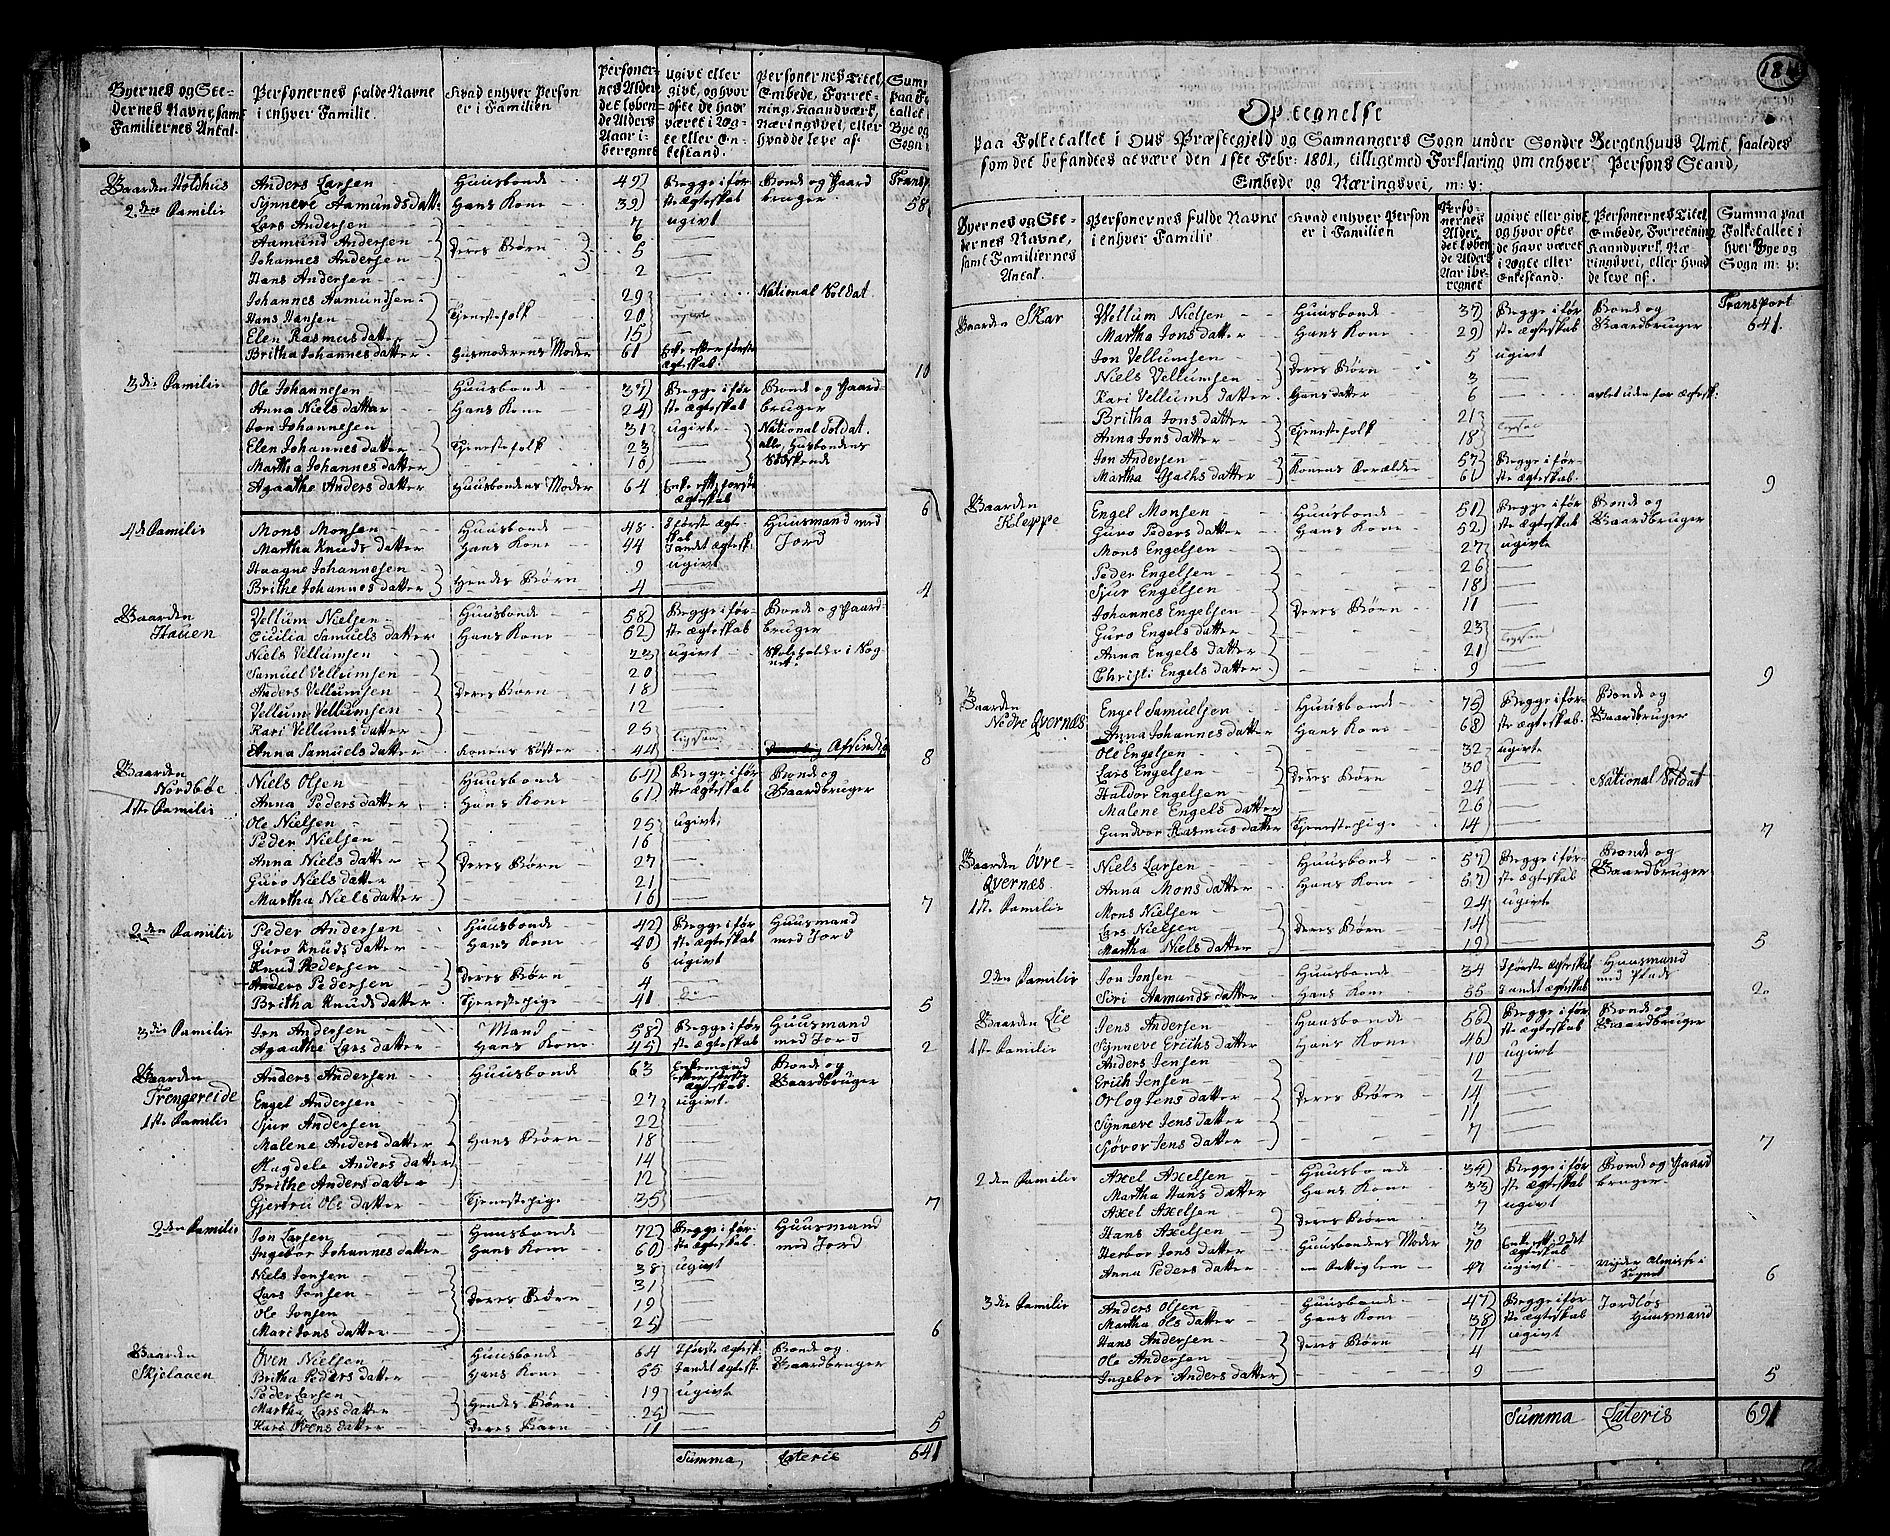 Byernes og Ste-
dernes Navne, samt
Familiernes Antal.
Personernes fulde Navne
i enhver Familie.
Hvad enhver Person
er i Familien
Personer-
nes Alder
det løben-
de Alders
Aar i-
beregnet
ugivt eller
givt, og hvor
ofte de have
været i Ægte
eller En-
kestand.
Personernes Titel,
Embede, Forret-
ning, Haandværk,
Næringsvei, eller
hvad de leve af.
Gaarden Holdhus
2den Familie
Anders Larsen Huusbonde 49 Begge i før- Bonde og Gaard
Synneve Aamunds datt. Hans Kone 39 ste Ægteskab bruger 58
Lars Andersen 7 ugivt
Aamund Andersen 6
Johannes Andersen Deres Børn 5
Hans Andersen 2
Johannes Aamundsen 29 National Soldat.
Hans Hansen Tjenestefolk 20 ugivt
Elen Rasmus datter 15
Britha Johannes datter Husmoderens Moder 61 Enke efter første
Ægteskab. 10
3die Familie Ole Johannesen Huusbonde 37 Begge i før- Bonde og Gaard-
Anna Niels datter Hans Kone 24 ste Ægteskab bruger
Jon Johannesen 31 ugivte National Soldat.
Elen Johannes datter Tjenestefolk 23 alle Husbondens
Martha Johannes datter 16 Sødskende
Agaathe Anders datter Huusbondens Moder 64 Enke eft. første
Ægteskab 6
4de Familie Mons Monsen Huusbonde 48 I første Ægte- Huusmand med
skab
Martha Knuds datter Hans Kone 44 I andet Ægtesk. Jord
Haagne Johannesen 9 ugivt
Brithe Johannes datter Hendes Børn 4 4
Gaarden
Hauen
Vellum Nielsen Huusbonde 58 Begge i før- Bonde og Gaard-
Cicilia Samuels datter Hans Kone 52 ste Ægteskab bruger
Niels Vellumsen 23 ugivt Skoleholder i Sog-
net.
Samuel Vellumsen 20
Anders Vellumsen Deres Børn 18
Vellum Vellumsen 12
Kari Vellums datter 25
Anna Samuels datter Konens Søster 44 Afsindig 8
Gaarden
Nordbøe
1ste Familie
Niels Olsen Huusbonde 64 Begge i før- Bonde og
Anna Peders datter Hans Kone 61 ste Ægteskab. Gaardbruger
Ole Nielsen 25 ugivt
Peder Nielsen 16
Anna Niels datter Deres Børn 27
Guro Niels datter 21
Martha Niels datter 16 7
2den Familie Peder Andersen Huusbonde 42 Begge i før- Huusmand
Guro Knuds datter Hans Kone 40 ste Ægteskab med Jord
Knud Pedersen 6 ugivt
Anders Pedersen Deres Børn 4
Britha Knuds datter Tjenestepige 41 5
3die Familie Jon Andersen Mand 58 Begge i før- Huusmand
Agaathe Lars datter Hans Kone 45 ste Ægteskab med Jord 2
Gaarden
Trengereide
1ste Familie
Anders Andersen Huusbonde 63 Enkemand Bonde og
efter første Gaardbruger
Ægteskab.
Engel Andersen 27 ugivt.
Sjur Andersen 22
Malene Anders datter Hans Børn 18
Magdele Anders datter 14
Brithe Anders datter 12
Gjertru Ols datter Tjenestepige 35 7
2den Familie Jon Larsen Huusbonde 72 Begge i før- Huusmand
Ingebor Johannes datter Hans Kone 60 ste Ægteskab. med Jord
Niels Jonsen 38 ugivt
Lars Jonsen Deres Børn 31
Ole Jonsen 19
Mari Jons datter 25 6
Gaarden
Skjelaaen
Øven Nielsen Huusbonde 64 I første Ægtesk. Bonde og
Britha Peders datter Hans Kone 55 I andet Ægtesk. Gaardbruger
Peder Larsen 19 ugivt
Martha Lars datter Hendes Børn 25
Kari Øvens datter Deres Barn 11 5
Summa Lateris 641
184
Optegnelse
paa Folketallet i Ous Præstegjeld og Samnangers Sogn under Søndre Bergenhuus Amt, saaledes
som det befandtes at være den 1ste Febr: 1801, tilligemed Forklaring om enhver Persons Stand,
Embede og Næringsvei, m: v:
Byernes og Ste-
dernes Navne,
samt Familiernes
Antal.
Personernes fulde Navne
i enhver Familie
Hvad enhver Person
er i Familien
Perso-
nernes
Alder,
det løben-
de Alders
Aar ibe-
regnet
ugivt eller givt,
og hvor ofte
de have været
i Ægte eller
Enkestand.
Personernes Titel,
Embede, Forretning,
Haandværk, Næ-
ringsvei, eller hvad
de leve af.
Summa paa
Folketallet i
hver Bye og
Sogn m: v:
Gaarden Skar Vellum Nielsen Huusbonde 37 Begge i før- Bonde og Transport
Martha Jons datter Hans Kone 29 ste Ægteskab Gaardbruger 641.
Jon Vellumsen Deres Børn 5 ugivt
Niels Vellumsen 3
Kari Vellums datter Hans datter 6 avlet uden for Ægtesk:
Britha Jons datter Tjenestefolk 21
Anna Jons datter 18
Jon Andersen Konens Forældre 57 Begge i før-
Martha datter 61 ste Ægteskab. 9
Gaarden
Kleppe
Engel Monsen Huusbonde 51 Begge i før- Bonde og
Guro Peders datter Hans Kone 52 ste Ægteskab Gaardbruger
Mons Engelsen 27 ugivte
Peder Engelsen 26
Sjur Engelsen 18
Johannes Engelsen Deres Børn 11
Guro Engels datter 23
Anna Engels datter 21
Christi Engels datter 9 9
Gaarden
Nedre Qvernæs
Engel Samuelsen Huusbonde 75 Begge i før- Bonde og
Anna Johannes datter Hans Kone 68 ste Ægteskab. Gaardbruger
Ole Engelsen 32 ugivte
Lars Engelsen Deres Børn 30
Haldor Engelsen 24 National Soldat
Malene Engels datter 26
Gundvor Rasmus datter Tjenestepige 14 7
Gaarden Øvre-
Qvernæs.
1ste Familie
Niels Larsen Huusbonde 57 Begge i før- Bonde og
Anna Mons datter Hans Kone 57 ste Ægteskab Gaardbruger
Mons Nielsen 24 ugivte
Lars Nielsen Deres Børn 14
Martha Niels datter 19 5
2den Familie Jon Jonsen Huusbonde 34 I første Ægteskab Huusmand
Siri Aamunds datter Hans Kone 55 I andet Ægteskab. med Plads 2
Gaarden Lie
1ste Familie
Jens Andersen Huusbonde 56 Begge i før- Bonde og
Synneve Erichs datter Hans Kone 46 ste Ægteskab Gaardbruger
Anders Jensen 10 ugivt
Erich Jensen 2
Orlog Jens datter Deres Børn 14
Synneve Jens datter 11
Sjøvor Jens datter 7 7
2den Familie Axel Axelsen Huusbonde 34 Begge i før- Bonde og Gaard
Martha Hans datter Hans Kone 33 ste Ægteskab bruger
Axel Axelsen Deres Børn 7 ugivt
Hans Axelsen 3
Herbor Jons datter Huusbondens Moder 70 Enke eft: 2det
Ægteskab
Anna Peders datter en Fattiglem 47 ugivt nyder Almisse i
Sognet 6
3die Familie Anders Olsen Huusbonde 47 Begge i før- Jordløs
Martha Ols datter Hans Kone 38 ste Ægteskab Huusmand
Hans Andersen Deres Børn 17 ugivt
Ole Andersen 4
Ingebor Anders datter 9 5
Summa Lateris 691